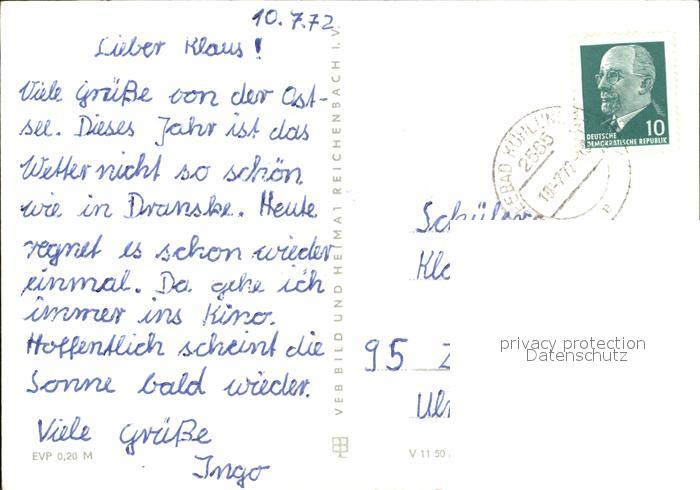 10.7.72
Lieber Klaus!
Viele Grüße von der Ost-
see. Dieses Jahr ist das
Wetter nicht so schön
wie in Dranske. Heute
regnet es schon wieder
einmal. Da gehe ich
immer ins Kino.
Hoffentlich scheint die
Sonne bald wieder.
Viele Grüße
Ingo
EVP 0,20 M
VEB BILD UND HEIMAT REICHENBACH I. V.
V 11 50
DEUTSCHE
DEMOKRATISCHE REPUBLIK
10
2565
Schüler
Kla
95 Z
Ul
privacy protection
Datenschutz